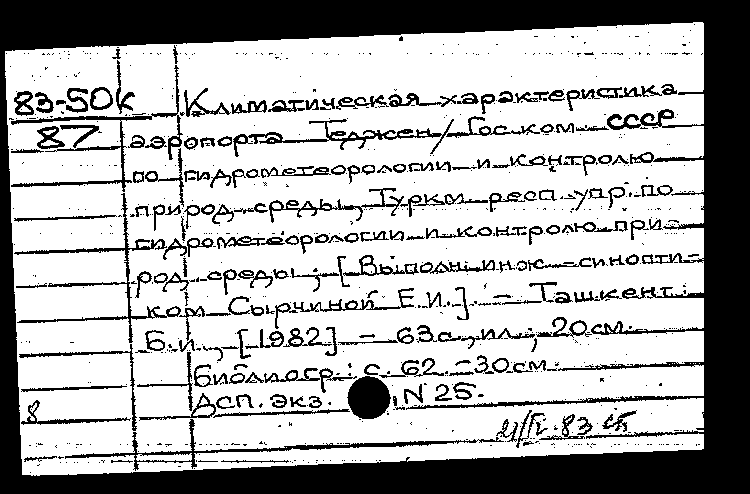 83-50к Климатическая характеристика
87 аэропорта Теджен/Гос. ком. СССР
по гидрометеорологии и контролю
природ. среды, Туркм. респ. упр. по
гидрометеорологии и контролю при-
род. среды; [Выполн. инж.-синопти-
ком Сырчиной Е.И.]. - Ташкент:
Б.и., [1982] - 63с., ил.; 20см.
Библиогр.: с. 62 - 30см.
Дсп. экз. N 25.
8
21/IV.83